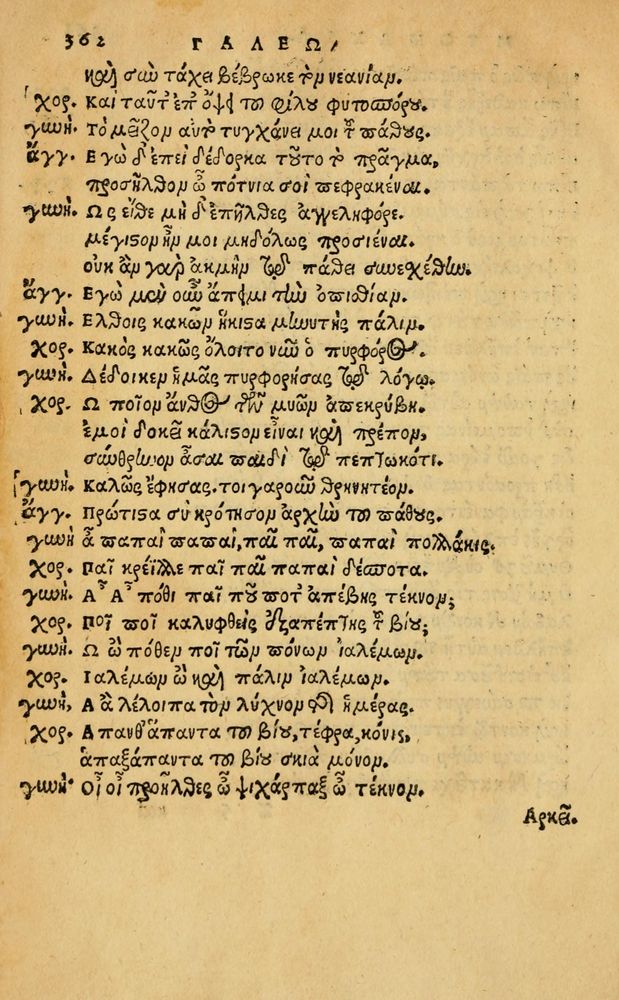 362 ΓΑΛΕΩ/
καὶ σὺν τάχει βέβρωκε τὸν νεανίαν.
χορ. Καὶ ταῦτ' ἐπ' ὄψει τοῦ φίλου φυτοσπόρου.
γυνή. Τὸ μεῖζον αὐτὸ τυγχάνει μοι τοῦ πάθους.
ἄγγ. Εγὼ δ' ἐπεὶ δέδορκα τοῦτο τὸ πρᾶγμα,
προσῆλθον ὦ πότνια σοὶ πεφρακέναι.
γυνή. Ως εἴθε μὴ δ' ἐπῆλθες ἀγγεληφόρε.
μέγιστον ἦν μοι μηδόλως προσιέναι.
οὐκ ἂν γὰρ ἀκμὴν τῷ πάθει συνεχέθην.
ἄγγ. Εγὼ μὲν οὖν ἄπειμι τὴν ὀπισθίαν.
γυνή. Ελθοις κακῶν ἥκιστα μηνυτὴς πάλιν.
χορ. Κακὸς κακῶς ὄλοιτο νῦν ὁ πυρφόρος.
γυνή. Δέδοικεν ἡμᾶς πυρφορήσας τῷ λόγῳ.
χορ. Ω ποῖον ἄνθος τῶν μυῶν ἀπεκρύβη.
ἐμοὶ δοκεῖ κάλιστον εἶναι καὶ πρέπον,
σύνθρηνον ᾆσαι παιδὶ τῷ πεπτωκότι.
γυνή. Καλῶς ἔφησας. τοιγαροῦν θρηνητέον.
ἄγγ. Πρώτιστα συγκρότησον ἀρχὴν τοῦ πάθους.
γυνή ἆ παπαῖ παπαῖ, παῖ παῖ, παπαῖ πολλάκις.
χορ. Παῖ κρεῖλλε παῖ παῖ παπαῖ δέσποτα.
γυνή. Α Α πόθι παῖ ποῦ ποτ' ἀπέβης τέκνον;
χορ. Ποῖ ποῖ καλυφθεὶς ἐξαπέπτης τοῦ βίου;
γυνή. Ω ὢ πόθεν ποῖ τῶν πόνων ἰαλέμων.
χορ. Ιαλέμων ὢ καὶ πάλιν ἰαλέμων.
γυνή, Α ἆ λέλοιπα τὸν λύχνον τῆς ἡμέρας.
χορ. Απανθ' ἅπαντα τοῦ βίου, τέφρα, κόνις,
ἁπαξάπαντα τοῦ βίου σκιὰ μόνον.
γυνή. Οἶ οἶ προῆλθες ὦ ψιχάρπαξ ὦ τέκνον.
Αρκεῖ.